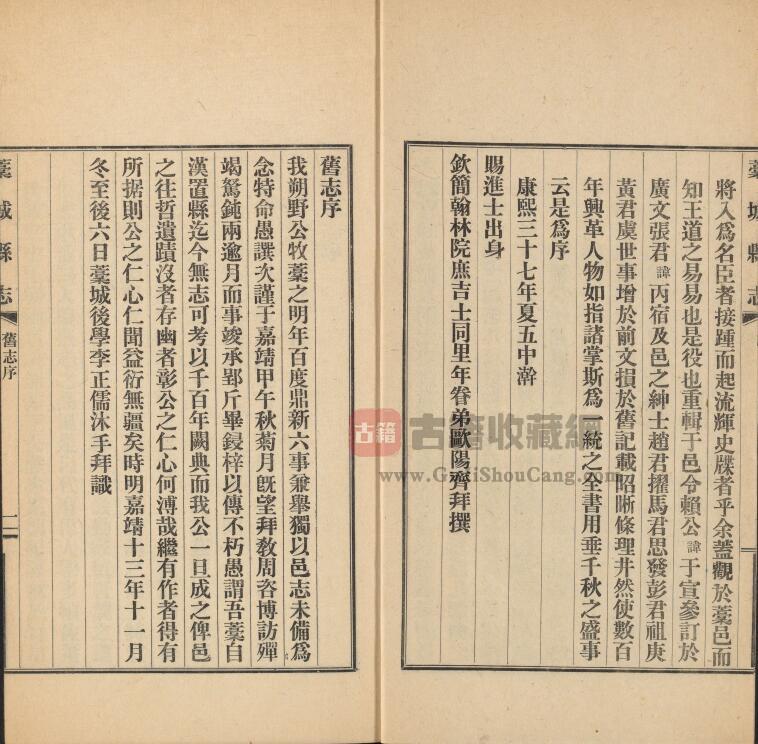 將入為名臣者接踵而起流輝史牒者乎余蓋觀於藁邑而
知王道之易易也是役也重輯于邑令賴公諱于宣參訂於
廣文張君諱丙宿及邑之紳士趙君擢馬君思發彭君祖庚
黃君虞世事增於前文損於舊記載昭晰條理井然使數百
年興革人物如指諸掌斯為一統之全書用垂千秋之盛事
云是為序
康熙三十七年夏五中澣
賜進士出身
欽簡翰林院庶吉士同里年眷弟歐陽齊拜撰
藁城縣志
舊志序
舊志序
我朔野公牧藁之明年百度鼎新六事兼舉獨以邑志未備為
念特命愚譔次謹于嘉靖甲午秋菊月旣望拜教周咨博訪殫
竭駑鈍兩逾月而事竣承郢斤畢鋟梓以傳不朽愚謂吾藁自
漢置縣迄今無志可考以千百年闕典而我公一旦成之俾邑
之往哲遺蹟沒者存幽者彰公之仁心何溥哉繼有作者得有
所据則公之仁心仁聞益衍無疆矣時明嘉靖十三年十一月
冬至後六日藁城後學李正儒沐手拜識
藁城縣志
舊志序
古籍
古籍收藏網
www.GujiShouCang.com